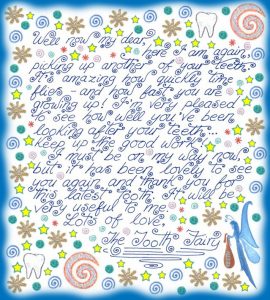 Well now my dear,
here I am again,
picking up another of your teeth.
It's amazing how quickly time
flies - and how fast you are
growing up! I'm very pleased
to see how well you've been
looking after your teeth...
keep up the good work!
I must be on my way now,
but it has been lovely to see
you again, and thank you for
this latest tooth. It will be
very useful to me.
Lots of love,
The Tooth Fairy